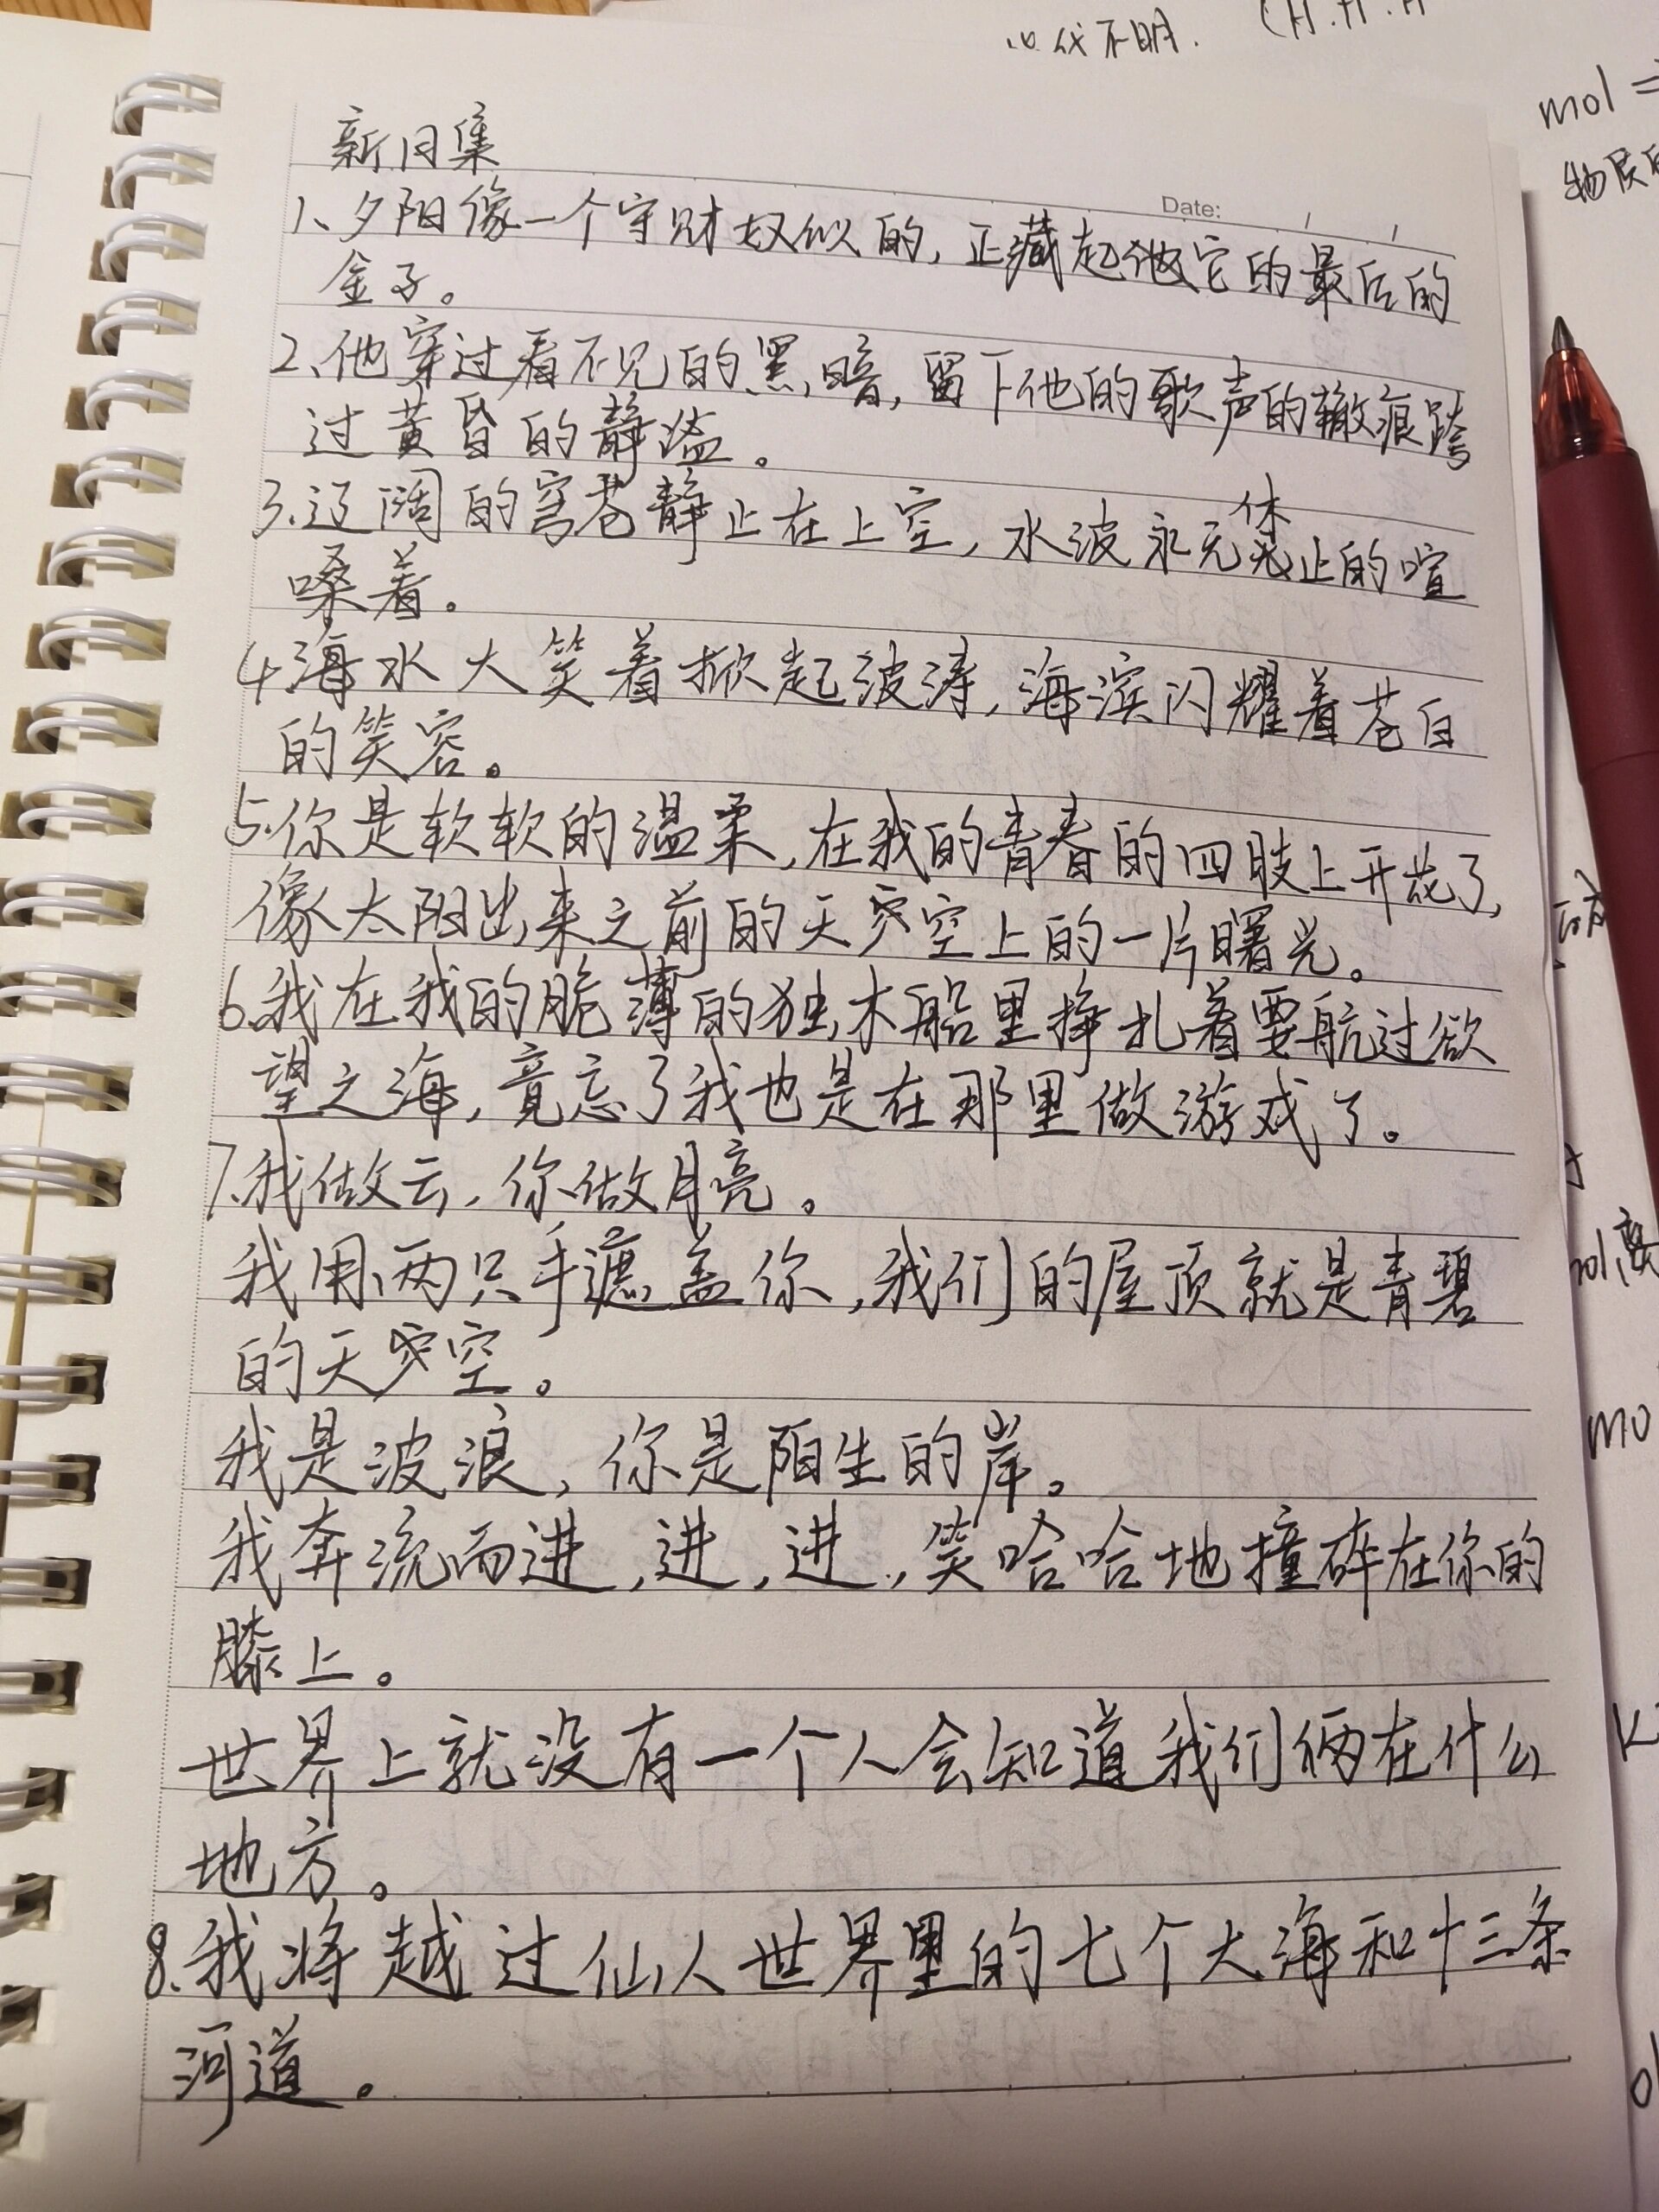 心代不明. (H.H.H
mol =
物质的
新月集
Date: / /
1、夕阳像一个守财奴似的,正藏起他它的最后的
金子。
2、他穿过看不见的黑暗,留下他的歌声的辙痕跨
过黄昏的静谧。
3.辽阔的穹苍静止在上空,水波永无休止的喧
嗓着。
4.海水大笑着掀起波涛,海滨闪耀着苍白
的笑容。
5.你是软软的温柔,在我的青春的四肢上开花了,
像太阳出来之前的天空上的一片曙光。
6.我在我的脆薄的独木船里挣扎着要航过欲
望之海,竟忘了我也是在那里做游戏了。
7.我做云,你做月亮。
我用两只手遮盖你,我们的屋顶就是青碧
的天空。
我是波浪,你是陌生的岸。
我奔流而进,进,进,笑哈哈地撞碎在你的
膝上。
世界上就没有一个人会知道我们俩在什么
地方。
8.我将越过仙人世界里的七个大海和十三条
河道。